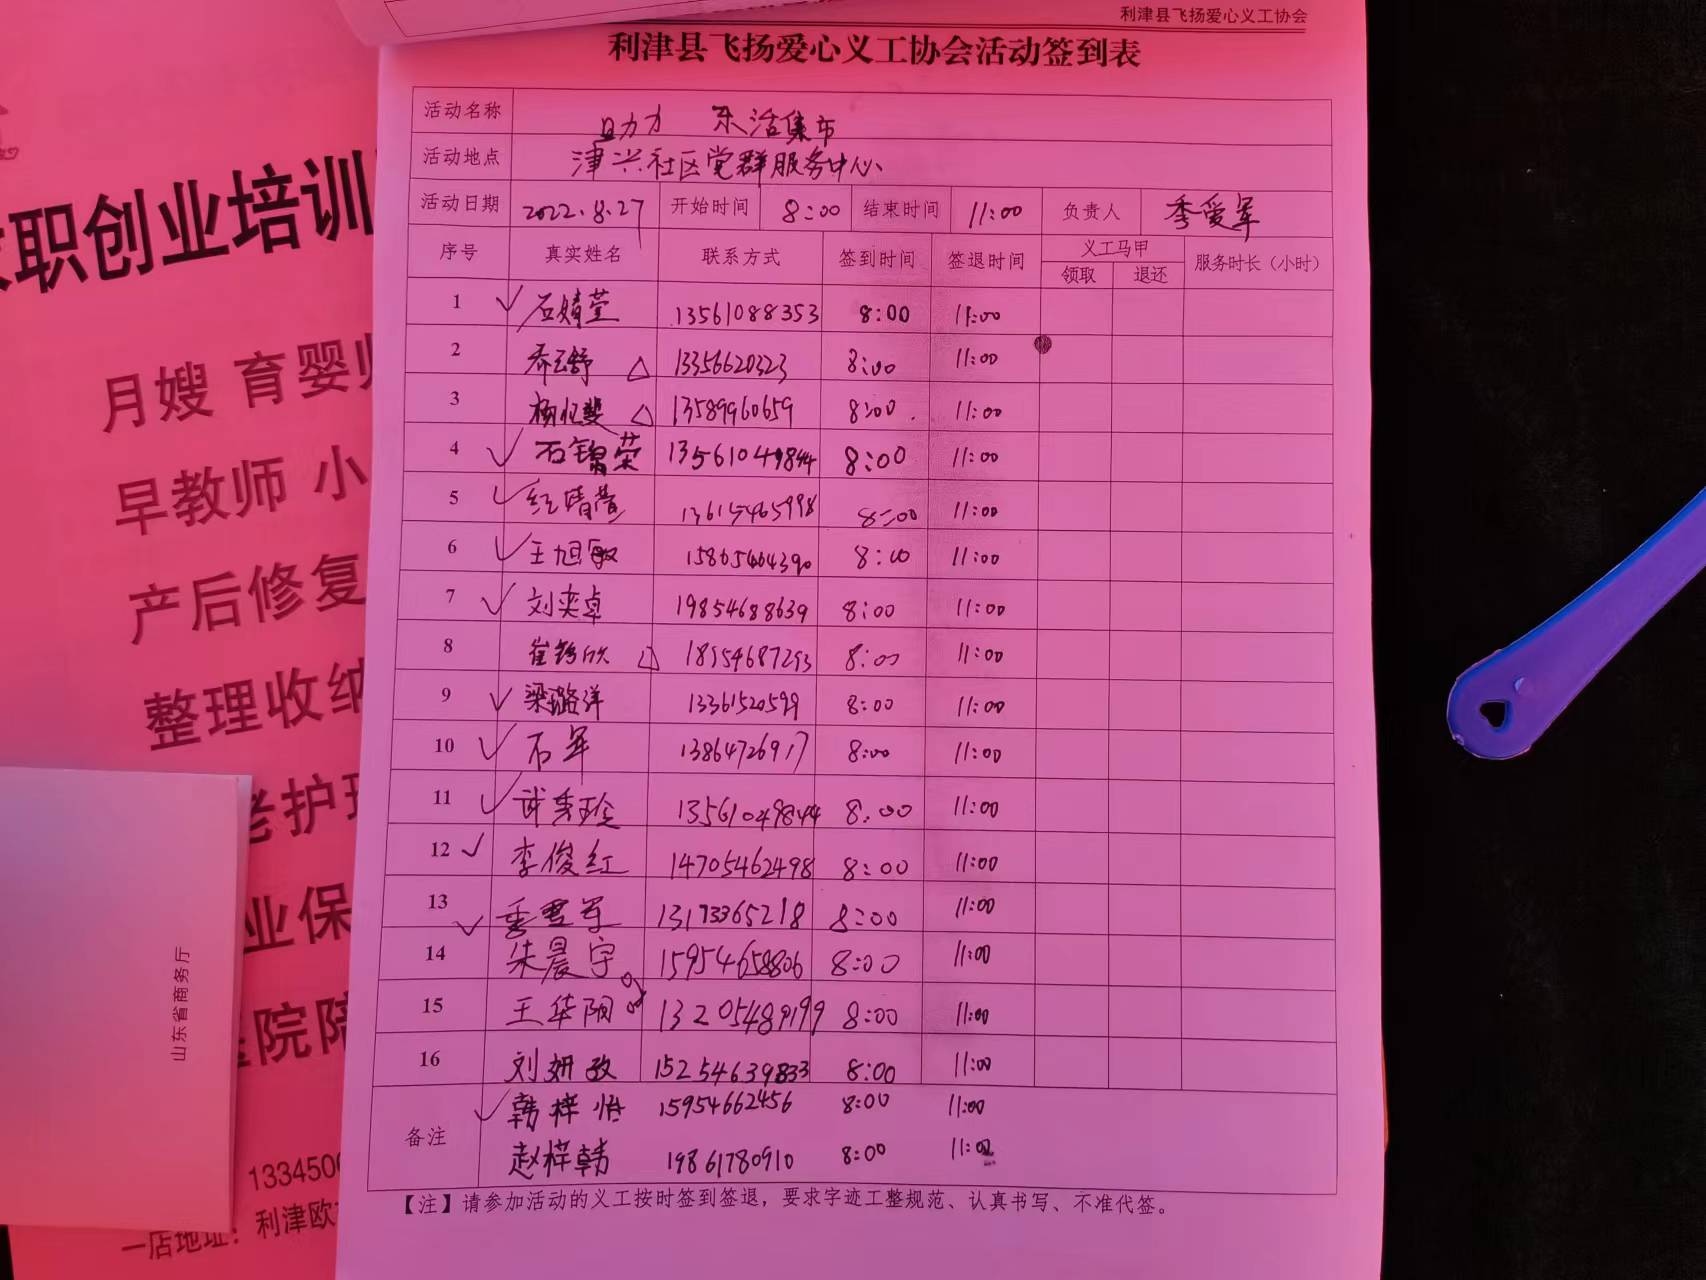 利津县飞扬爱心义工协会
利津县飞扬爱心义工协会活动签到表
活动名称 助力 乐活集市
活动地点 津兴社区党群服务中心
活动日期 2022.8.27 开始时间 8:00 结束时间 11:00 负责人 季爱军
序号 真实姓名 联系方式 签到时间 签退时间 义工马甲 服务时长（小时）
领取 退还
1 石婧萱 13561088353 8:00 11:00
2 乔云舒 13356620323 8:00 11:00
3 杨忆斐 13589960659 8:00 11:00
4 石锦荣 13561049844 8:00 11:00
5 13615465998 8:00 11:00
6 王旭敏 15865464390 8:00 11:00
7 刘奕卓 19854688639 8:00 11:00
8 崔 欣 18954687293 8:00 11:00
9 梁璐洋 13361520599 8:00 11:00
10 石军 13864726917 8:00 11:00
11 武秀珍 13561049844 8:00 11:00
12 李俊红 14705462498 8:00 11:00
13 季爱军 13173365218 8:00 11:00
14 朱晨宇 15954658806 8:00 11:00
15 王华阳 13205489199 8:00 11:00
16 刘妍孜 15254639833 8:00 11:00
备注 韩梓怡 15954662456 8:00 11:00
赵梓韩 19861780910 8:00 11:00
【注】请参加活动的义工按时签到签退，要求字迹工整规范、认真书写、不准代签。
职创业培训
月嫂 育婴师
早教师 小
产后修复
整理收纳
老护理
业保
医院陪
1334500
一店地址：利津欧
山东省商务厅